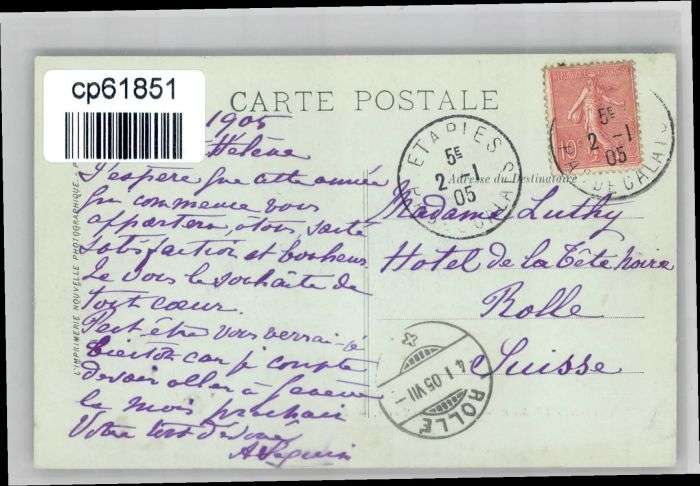 cp61851
CARTE POSTALE
1905
Hélène
J'espère que cette année
qui commence vous
apportera, à tous, santé
satisfaction et bonheur
Je vous le souhaite de
tout cœur.
Peut-être vous verrai-je
bientôt car je compte
devoir aller à Genève
le mois prochain
Votre tout dévoué
A Seguin
L'IMPRIMERIE NOUVELLE PHOTOGRAPHIQUE
ETAPLES
5E
2 -1
05
5E
2 -1
05
PAS-DE-CALAIS
Adresse du Destinataire
Madame Luthy
Hotel de la Tête noire
Rolle
Suisse
4 I 05 VII
ROLLE